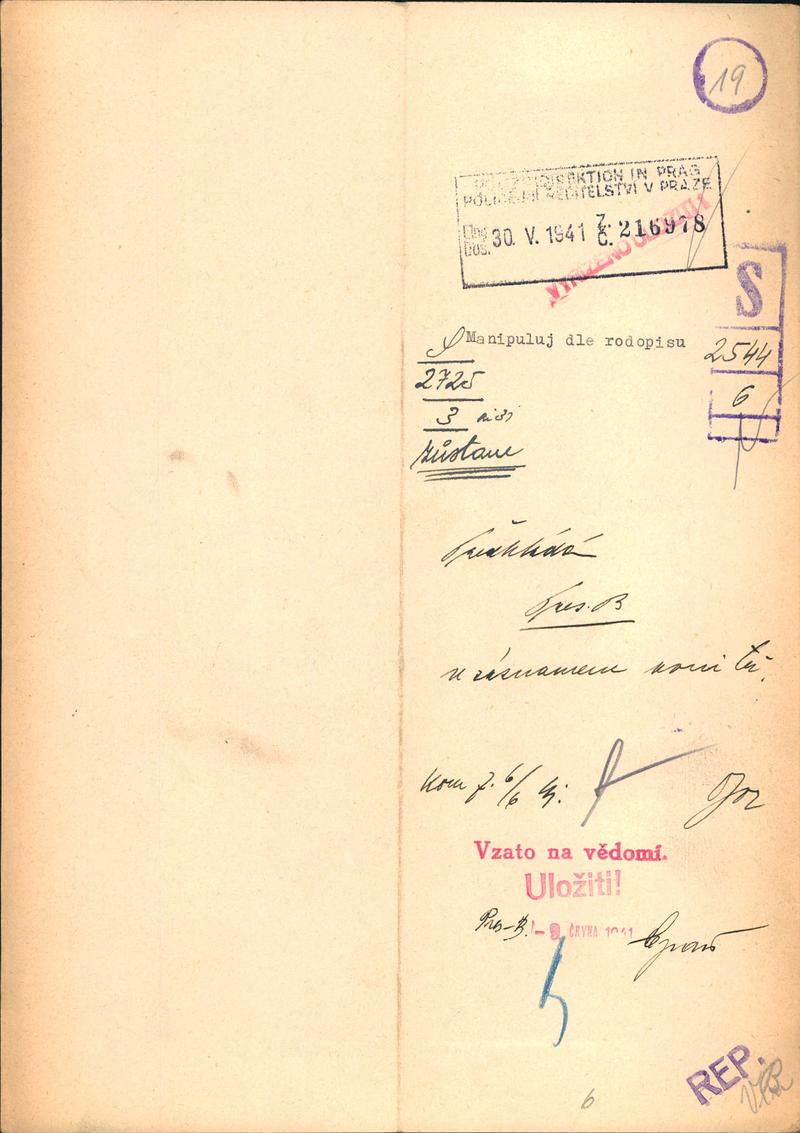 19
POLIZEIDIREKTION IN PRAG
POLICEJNÍ ŘEDITELSTVÍ V PRAZE
Eing. Doš. 30. V. 1941 Z. Č. 216978
VYŘÍZENO ULOŽITI
S
2544
6
Manipuluj dle rodopisu
2725
3
zůstane
Předkládá
Pres. B
se záznamem
6/6
Vzato na vědomí.
Uložiti!
Pres-B. - 9. ČRVNA 1941
REP.
6